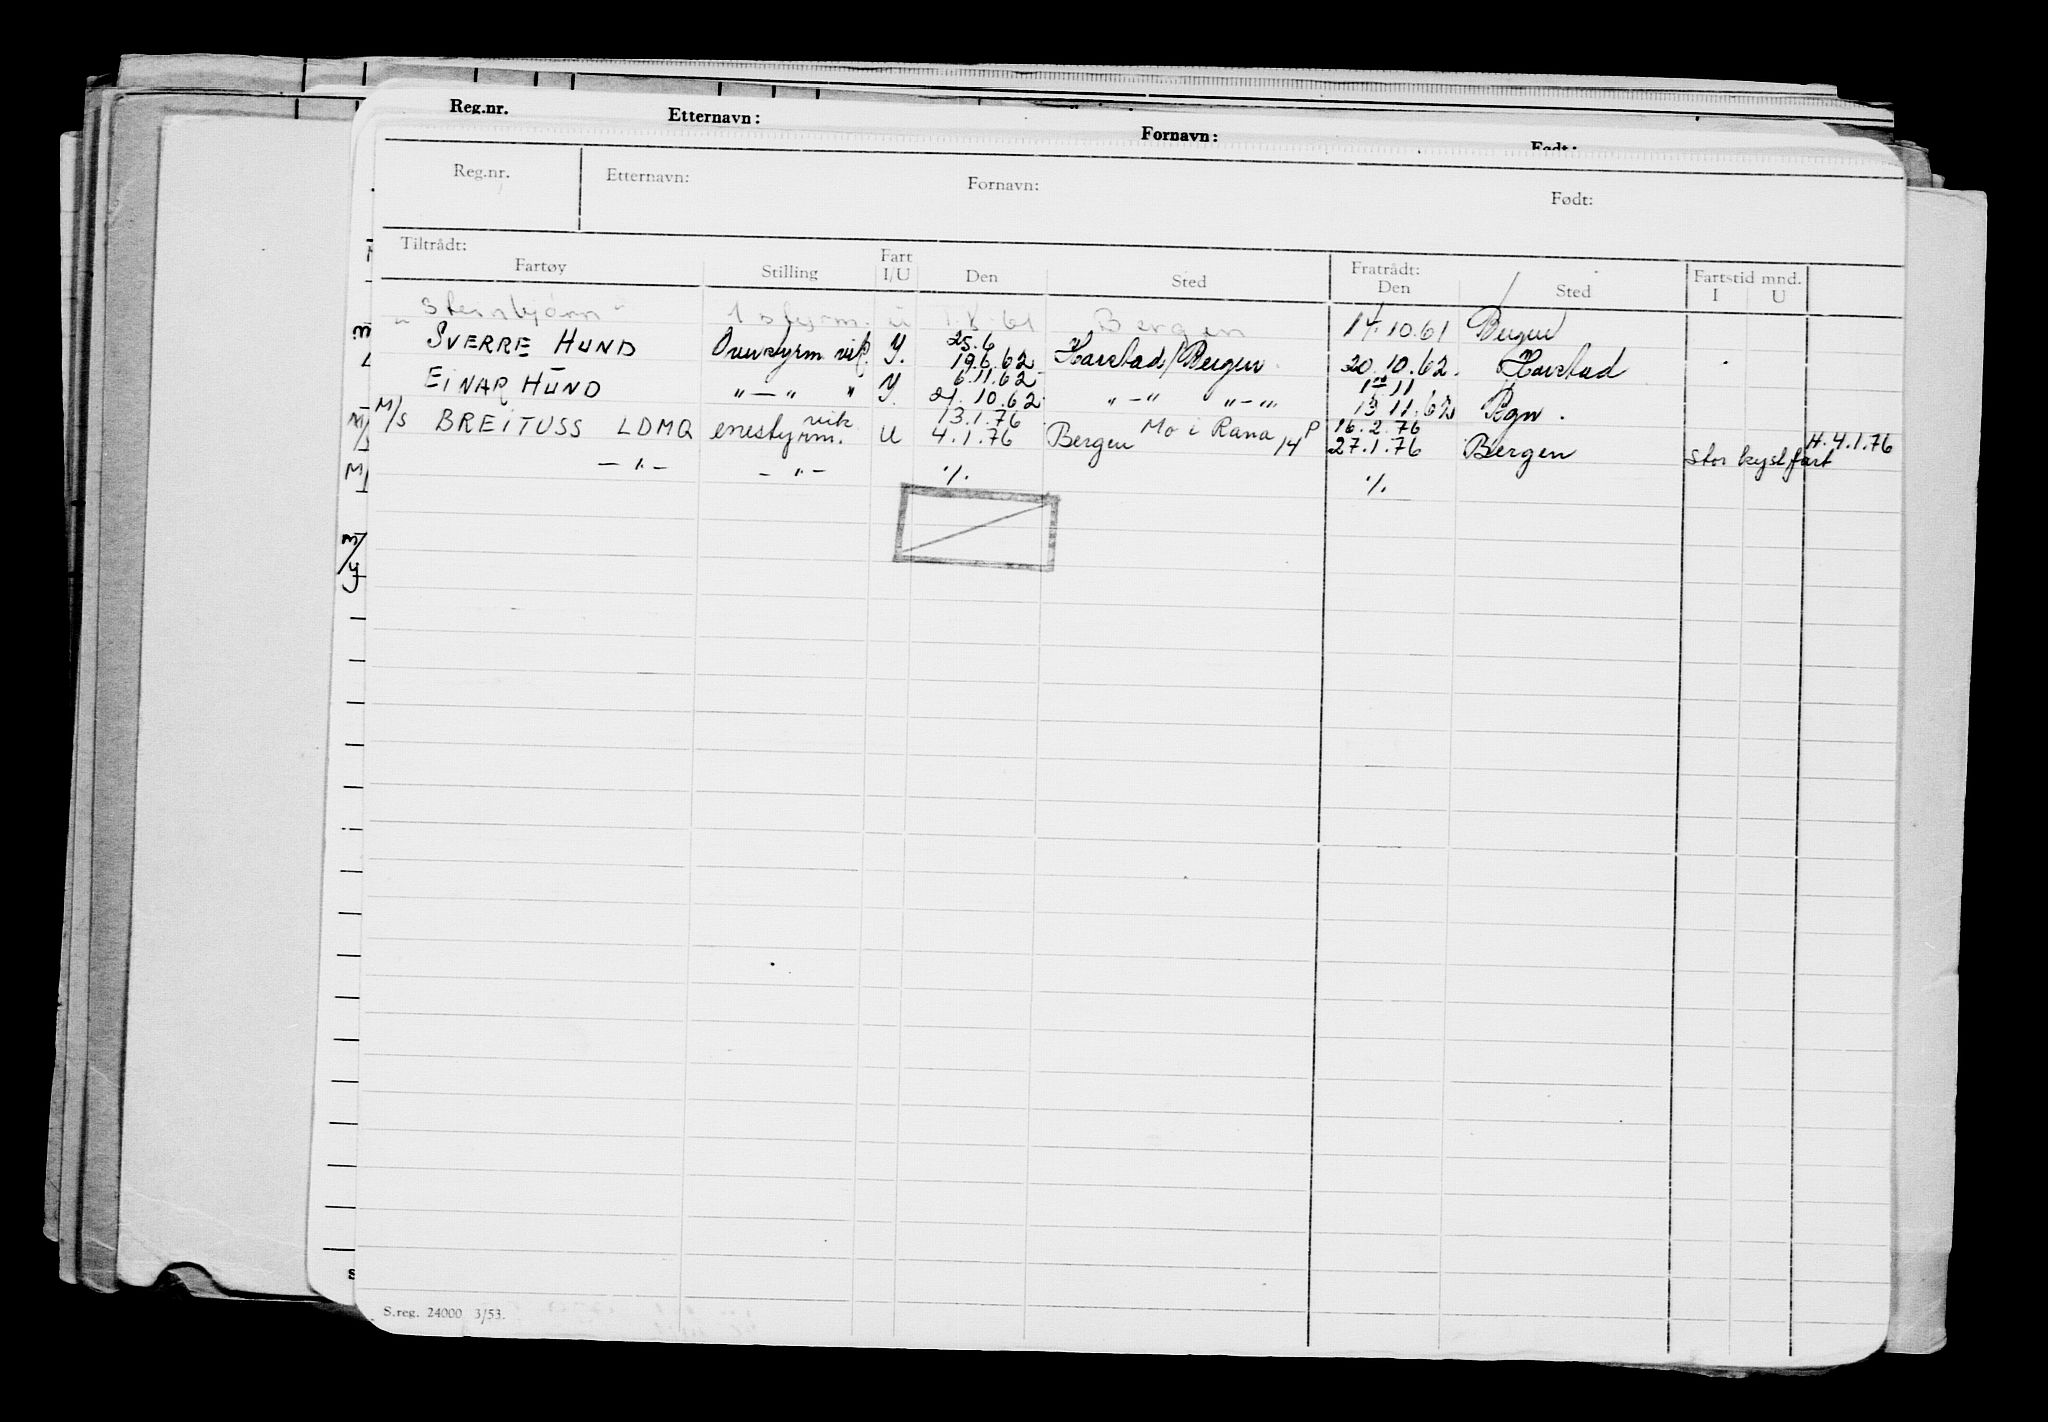 Reg.nr. Etternavn: Fornavn: Født:
Reg.nr. Etternavn: Fornavn: Født:
Tiltrådt: Fratrådt:
Fartøy Stilling Fart I/U Den Sted Den Sted Fartstid mnd. I U
"Steinbjörn" 1 styrm. u 1.8.61 Bergen 14.10.61 Bergen
25.6
SVERRE HUND Overstyrm vik. Y. 19.6.62 Harstad/Bergen. 20.10.62. Harstad
6.11.62 1 11
EINAR HUND " — " " Y. 21.10.62 " — " " — " 15 11.62 Bgn.
vik 13.1.76 Mo i Rana P 16.2.76 H.4.1.76
M/S BREITUSS LDMQ enestyrm. U 4.1.76 Bergen 14 27.1.76 Bergen stor kystfart
— " — — " — ·/. ·/.
M/
S.reg. 24000 3/53.